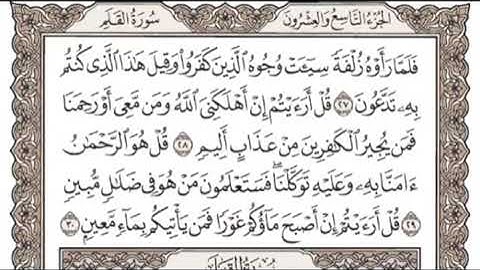 الجزء التاسع والعشرون
سورة القلم
فَلَمَّا رَأَوْهُ زُلْفَةً سِيٓـَٔتْ وُجُوهُ ٱلَّذِينَ كَفَرُوا۟ وَقِيلَ هَٰذَا ٱلَّذِى كُنتُم
بِهِۦ تَدَّعُونَ ٢٧ قُلْ أَرَءَيْتُمْ إِنْ أَهْلَكَنِىَ ٱللَّهُ وَمَن مَّعِىَ أَوْ رَحِمَنَا
فَمَن يُجِيرُ ٱلْكَٰفِرِينَ مِنْ عَذَابٍ أَلِيمٍ ٢٨ قُلْ هُوَ ٱلرَّحْمَٰنُ
ءَامَنَّا بِهِۦ وَعَلَيْهِ تَوَكَّلْنَا ۖ فَسَتَعْلَمُونَ مَنْ هُوَ فِى ضَلَٰلٍ مُّبِينٍ
٢٩ قُلْ أَرَءَيْتُمْ إِنْ أَصْبَحَ مَآؤُكُمْ غَوْرًا فَمَن يَأْتِيكُم بِمَآءٍ مَّعِينٍۭ ٣٠